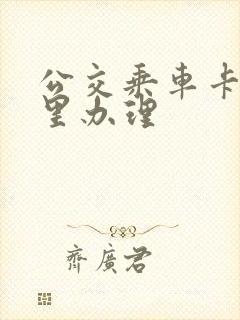 公交乘车卡
里办理
齊廣君